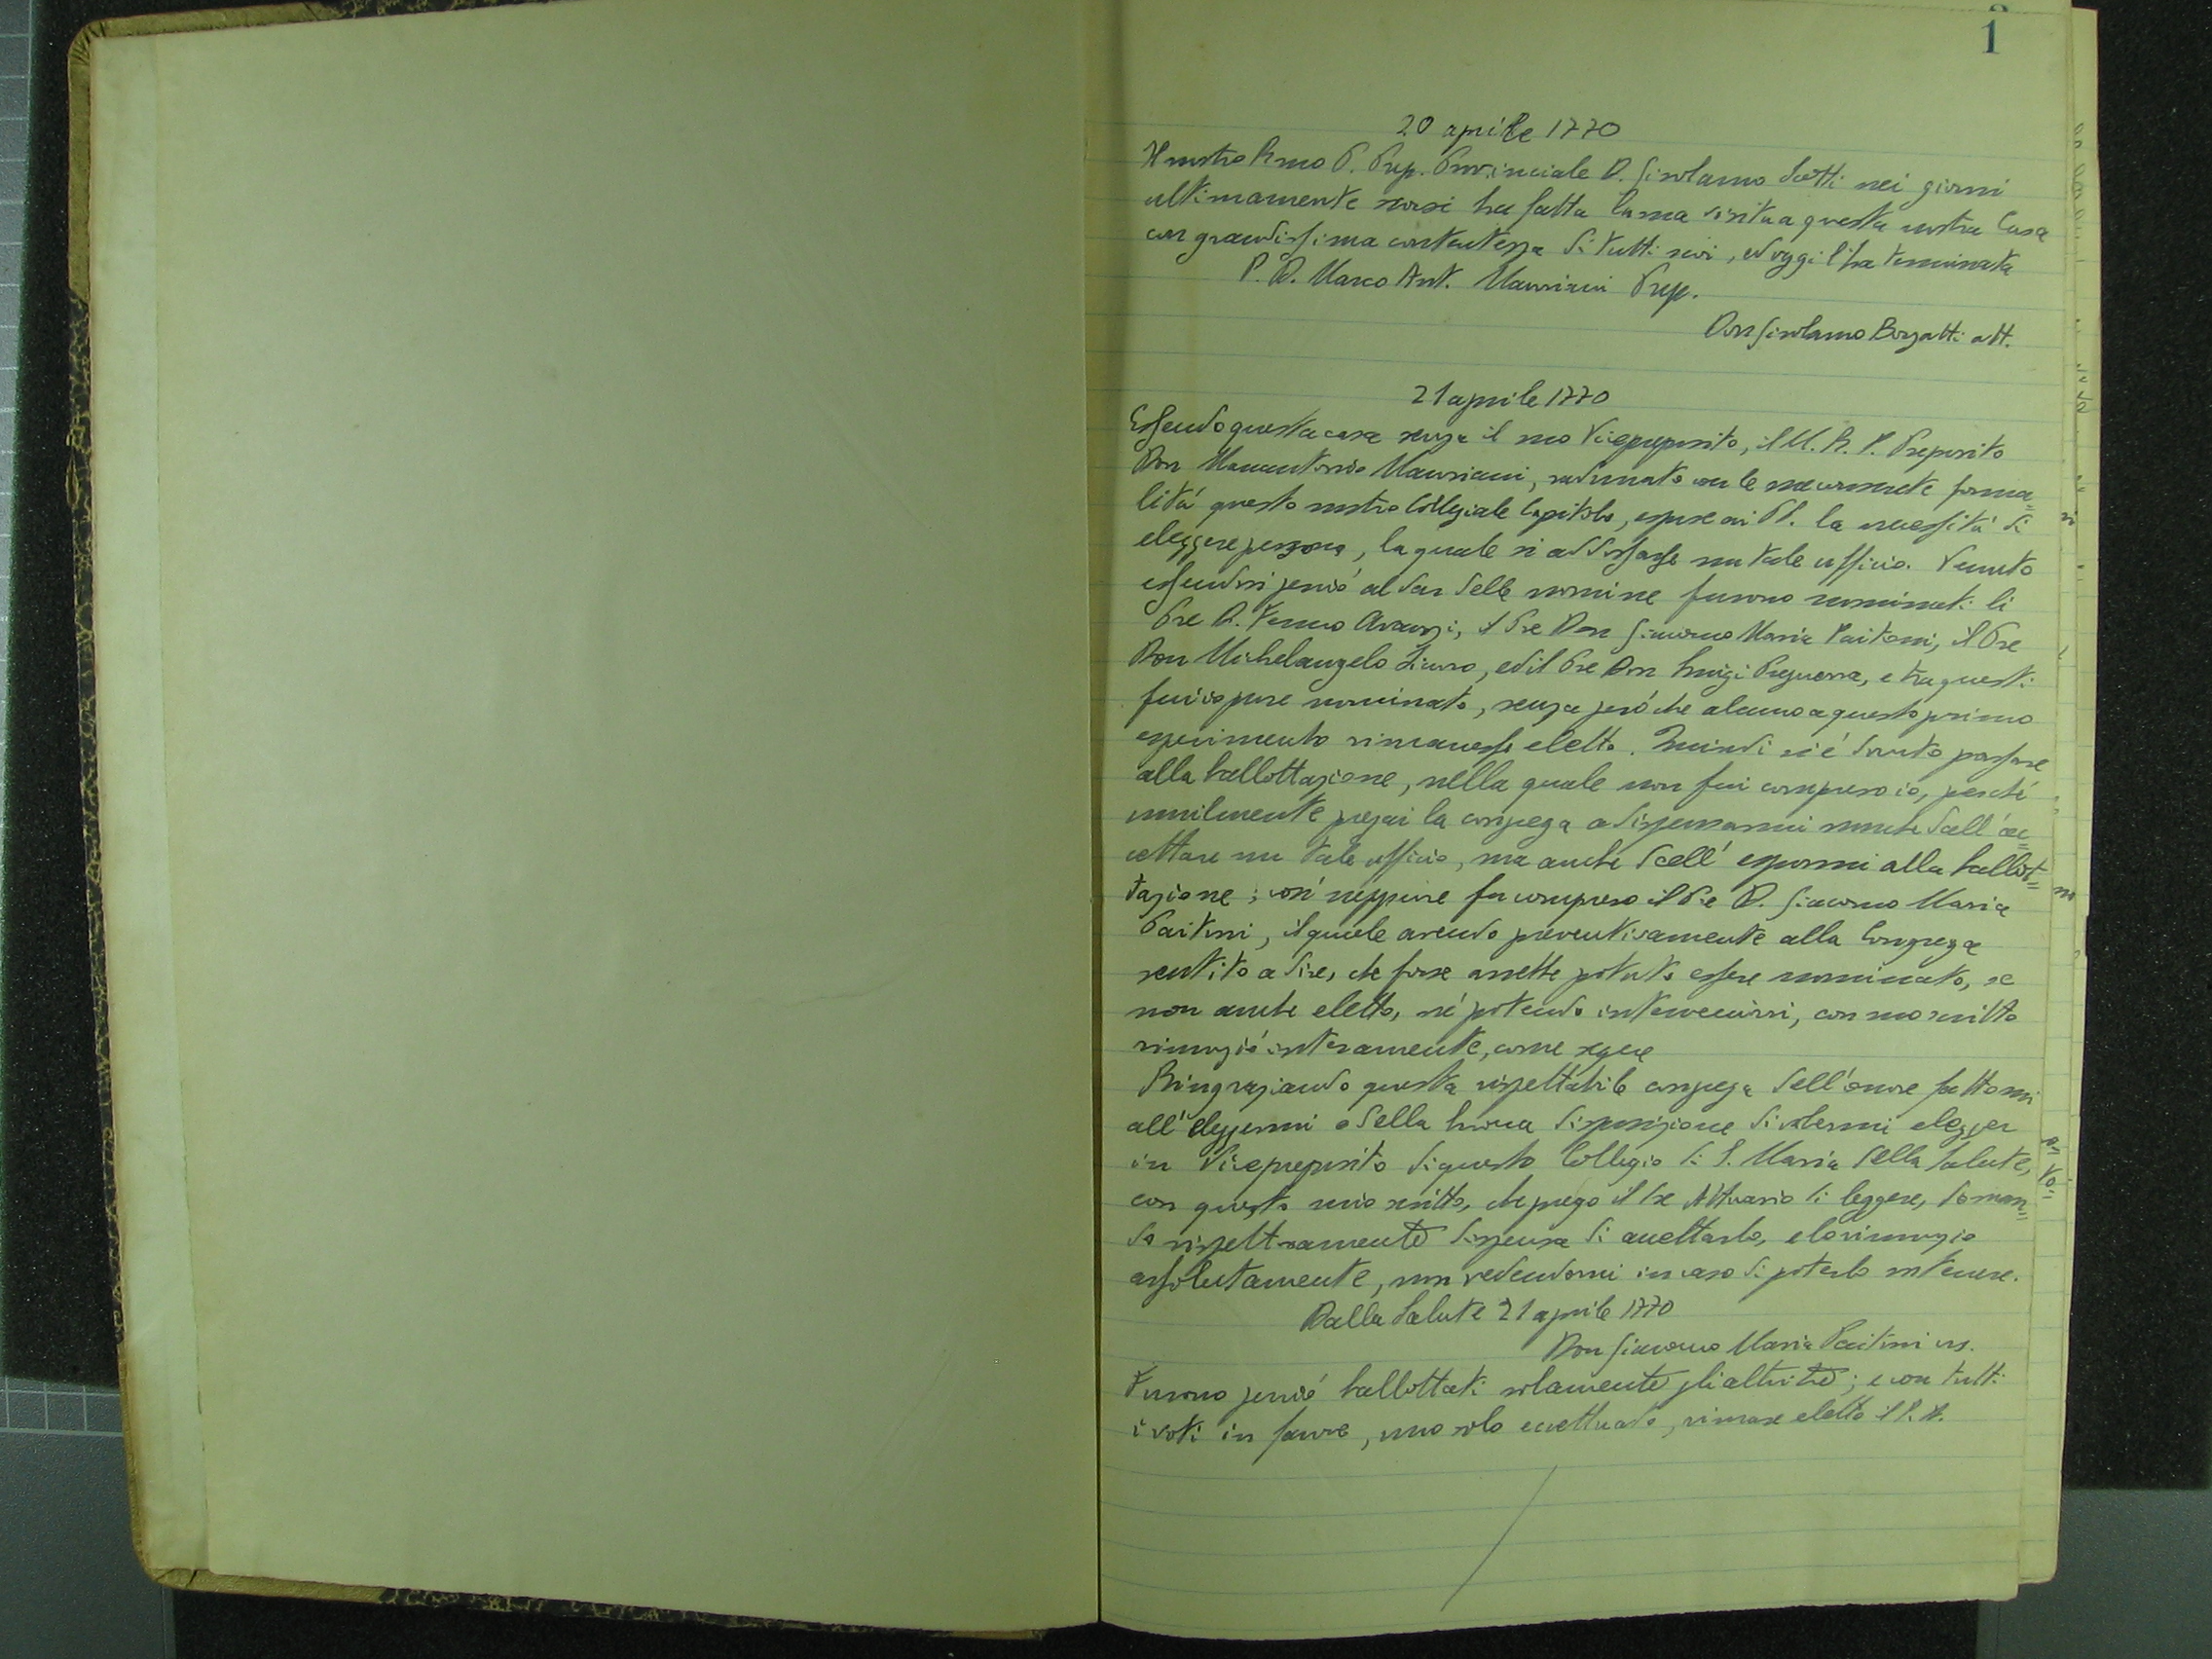 1
20 aprile 1770
Il nostro Rmo P. Prep. Provinciale D. Girolamo Scotti nei giorni
ultimamente scorsi ha fatta la sua visita a questa nostra Casa
con grandissima contentezza di tutti noi, ed oggi l'ha terminata
P. D. Marco Ant. Manriani Prep.
Don Girolamo Borzatti att.
21 aprile 1770
Essendo questa casa senza il suo Vicepreposito, il M. R. P. Preposito
Don Marcantonio Manriani, radunato con le consuete forma=
lità questo nostro Collegiale Capitolo, espose ai PP. la necessità di
eleggere persona, la quale si addossasse un tale ufficio. Venuto
essendosi perciò al dar delle nomine furono nominati li
Pre D. Avanzi, il Pre Don Giacomo Maria Paitoni, il Pre
Don Michelangelo ed il Pre Don Luigi e tra questi
fui io pure nominato, senza però che alcuno a questo primo
esperimento rimanesse eletto. Quindi si è dovuto passare
alla ballottazione, nella quale non fui compreso io, perché
umilmente pregai la congrega a dispensarmi nonche dall'ac=
cettare un tale ufficio, ma anche dall' espormi alla ballot=
tazione; così neppure fu compreso il Pre D. Giacomo Maria
Paitoni, il quale avendo preventivamente alla Congrega
sentito a dire, che forse avrebbe potuto essere nominato, se
non anche eletto, né potendo intervenirvi, con suo scritto
rinunziò interamente, come segue
Ringraziando questa rispettabile congrega dell'onore fattomi
all'eleggermi o della buona disposizione di volermi elegger
in Vicepreposito di questo Collegio di S. Maria della Salute,
con questo mio scritto, che prego il Pre Attuario di leggere, doman=
do rispettosamente dispensa di accettarlo, e lo rinunzio
assolutamente, non vedendomi in caso di poterlo sostenere.
Dalla Salute 21 aprile 1770
Don Giacomo Maria Paitoni crs.
Furono perciò ballottati solamente gli altri tre; e con tutti
i voti in favore, uno solo eccettuato, rimase eletto il P. D.